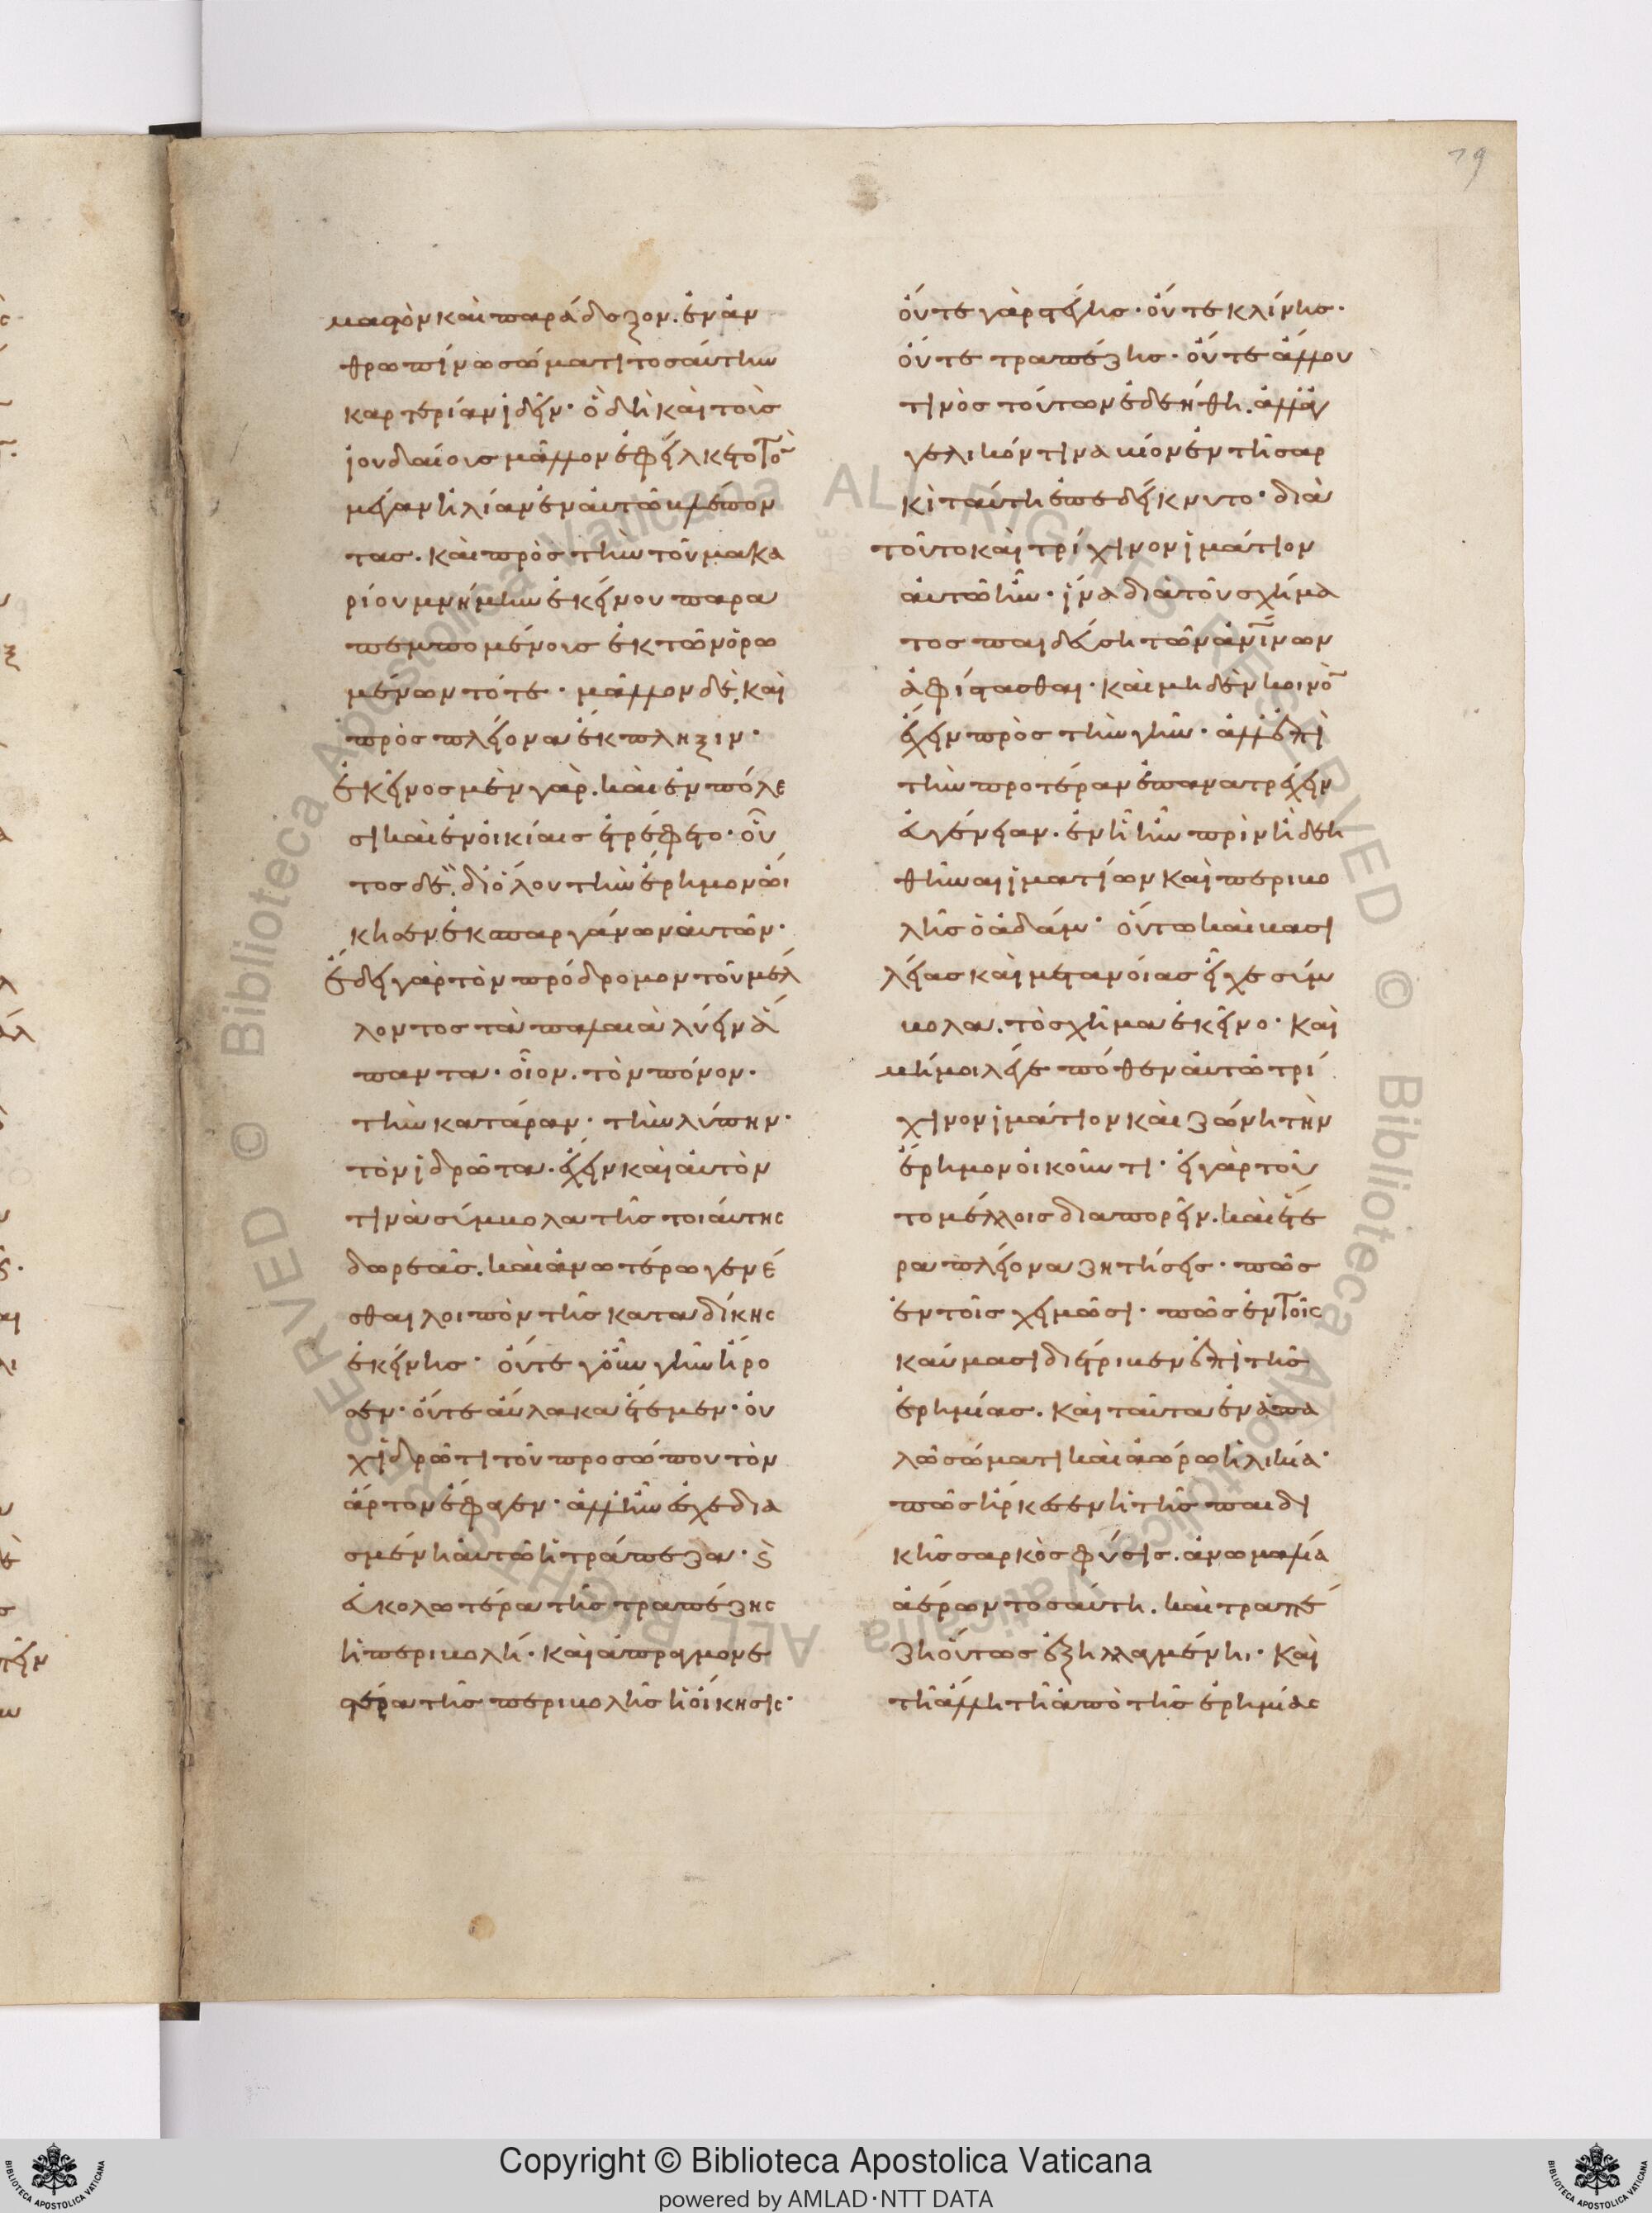 79
μαστὸν καὶ παράδοξον. ἐν ἀν
θρωπίνω σώματι τοσαύτην
καρτερίαν ἰδεῖν· ὃ δὴ καὶ τοὺς
ἰουδαίους μᾶλλον ἐφέλκετο τὸ
μέγαν ἠλίαν ἐν αὐτῶ βλέπον
τας. καὶ πρὸς τὴν τοῦ μακα
ρίου μνήμην ἐκείνου παρα
πεμπομένοις ἐκ τῶν ὁρω
μένων τότε· μᾶλλον δὲ, καὶ
πρὸς πλείονα ἔκπληξιν·
ἐκεῖνος μὲν γὰρ. καὶ ἐν πόλε
σι καὶ ἐν οἰκίαις ἐτρέφετο· οὗ
τος δὲ, διόλου τὴν ἔρημον ὤι
κησεν ἐκ σπαργάνων αὐτῶν·
ἔδει γὰρ τὸν πρόδρομον τοῦ μέλ
λοντος τὰ παλαιὰ λύειν ἅ
παντα· οἷον. τὸν πόνον·
τὴν κατάραν· τὴν λύπην·
τὸν ἱδρῶτα. ἔχειν καὶ αὐτὸν
τινὰ σύμβολα τῆς τοιαύτης
δωρεᾶς. καὶ ἀνωτέρω γενέ
σθαι λοιπὸν τῆς καταδίκης
ἐκείνης· οὔτε γοῦν γῆν ἤρο
σεν· οὔτε αὔλακα ἔτεμεν· οὐ
χ ἱδρῶτι τοῦ προσώπου τὸν
ἄρτον ἔφαγεν· ἀλλ ἦν ἐσχεδια
σμένη αὐτῶ ἡ τράπεζα· καὶ
εὐκολωτέρα τῆς τραπέζης
ἡ περιβολή· καὶ ἀπραγμονε
στέρα τῆς περιβολῆς ἡ οἴκησις·
οὔτε γὰρ στέγης· οὔτε κλίνης·
οὔτε τραπέζης· οὔτε ἄλλου
τινὸς τούτων ἐδεήθη. ἀλλ ἀγ
γελικόν τινα βίον ἐν τῆ σαρ
κὶ ταύτη ἐπεδείκνυτο· διὰ
τοῦτο καὶ τρίχινον ἱμάτιον
αὐτῶ ἦν· ἵνα διὰ τοῦ σχήμα
τος παιδεύση τῶν ἀνίνων
ἀφίστασθαι· καὶ μηδὲν κοινὸ
ἔχειν πρὸς τὴν γῆν· ἀλλ ἐπὶ
τὴν προτέραν ἐπανατρέχειν
εὐγένειαν. ἐν ἧ ἦν πρὶν ἢ δεη
θῆναι ἱματίων καὶ περιβο
λῆς ὁ ἀδάμ· οὕτω καὶ βασι
λείας καὶ μετανοίας εἶχε σύμ
βολα. τὸ σχῆμα ἐκεῖνο· καὶ
μή μοι λέγε πόθεν αὐτῶ τρί
χινον ἱμάτιον καὶ ζώνη τὴν
ἔρημον οἰκοῦντι· εἰ γὰρ τοῦ
το μέλλοις διαπορεῖν. καὶ ἕτε
ρα πλείονα ζητήσεις· πῶς
ἐν τοῖς χειμῶσι· πῶς ἐν τοῖς
καύμασι διέτριβεν ἐπὶ τῆς
ἐρημίας. καὶ ταῦτα ἐν ἁπα
λῶ σώματι καὶ ἀώρω ἡλικία·
πῶς ἤρκεσεν ἡ τῆς παιδι
κῆς σαρκὸς φύσις. ἀνωμαλία
ἀέρων τοσαύτη. καὶ τραπέ
ζη οὕτως ἐξηλλαγμένη· καὶ
τῆ ἄλλη τῆ ἀπὸ τῆς ἐρημίας
Copyright © Biblioteca Apostolica Vaticana
powered by AMLAD·NTT DATA